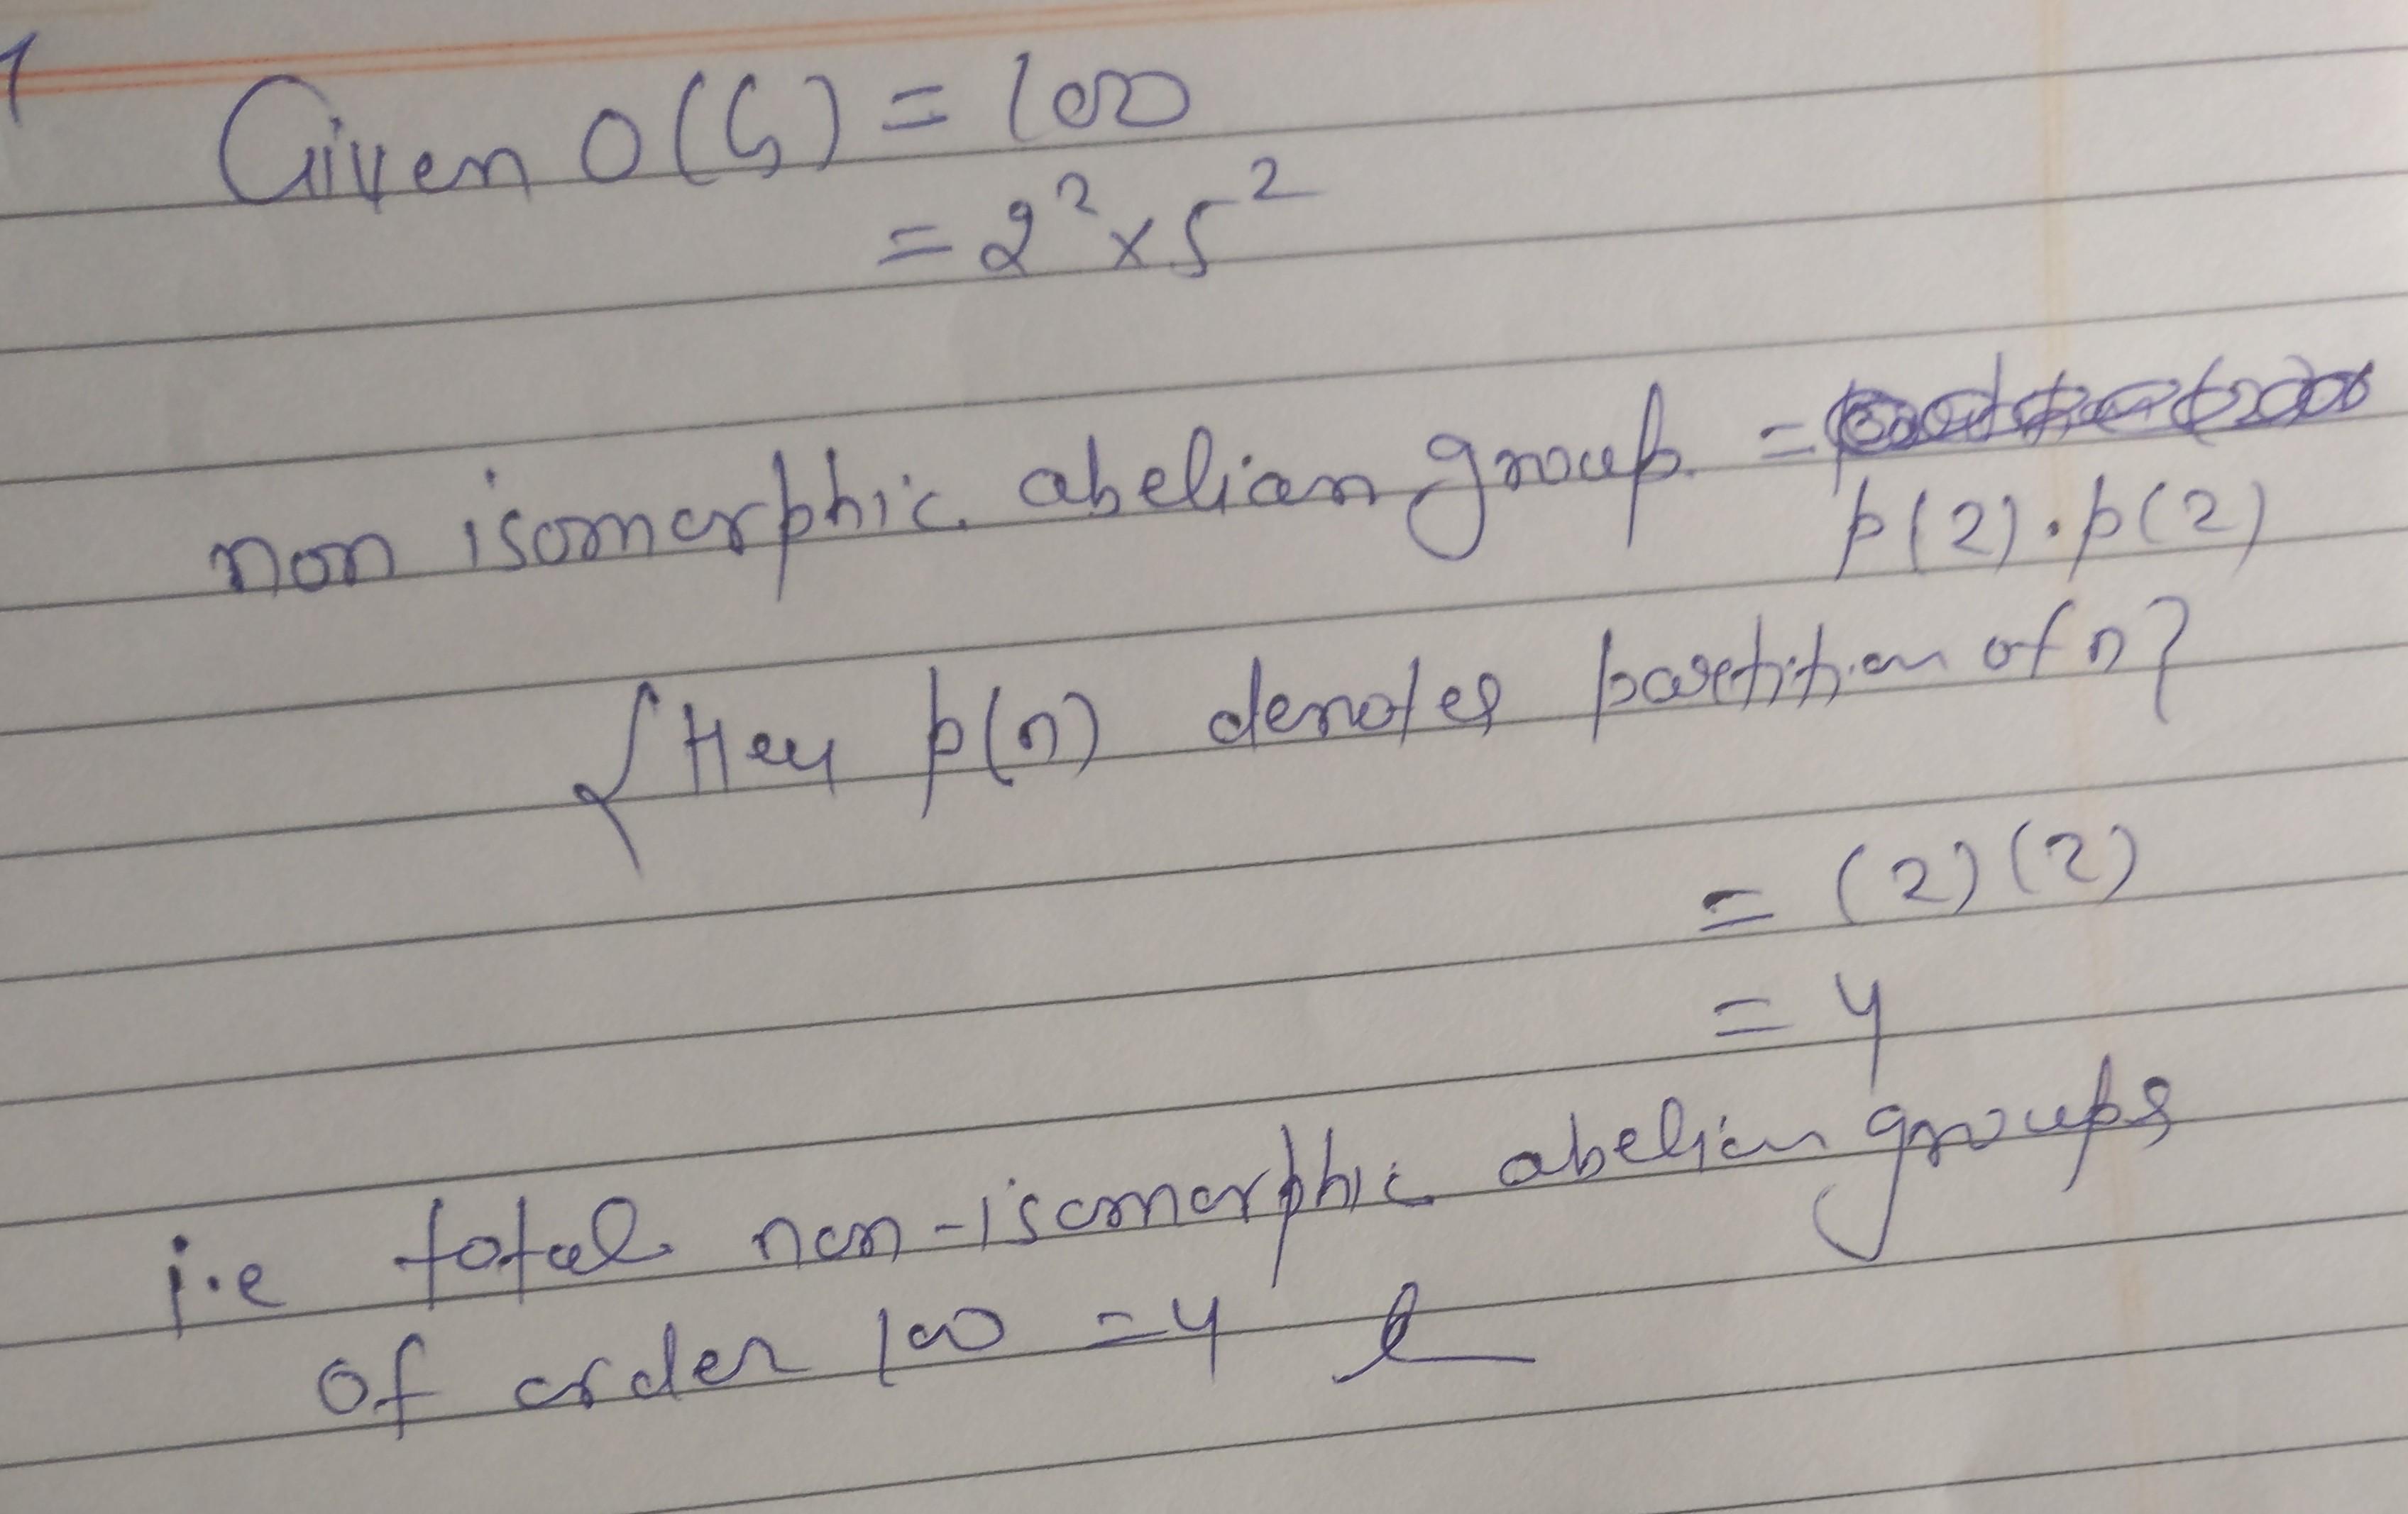 1
Given O(G) = 100
= 2² × 5²
non isomorphic abelian group =
p(2).p(2)
{Here p(n) denotes partition of n}
= (2)(2)
= 4
i.e total non-isomorphic abelian groups
of order 100 = 4